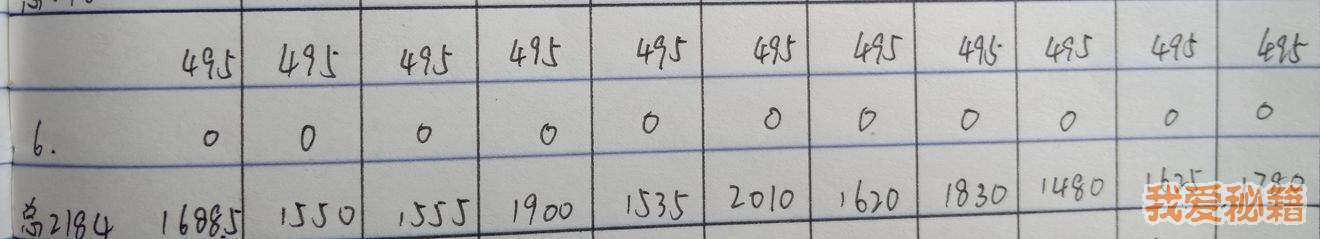 495 495 495 495 495 495 495 495 495 495 495
6. 0 0 0 0 0 0 0 0 0 0 0
总2184 1688.5 1550 1555 1900 1535 2010 1620 1830 1480 1625
我爱秘籍